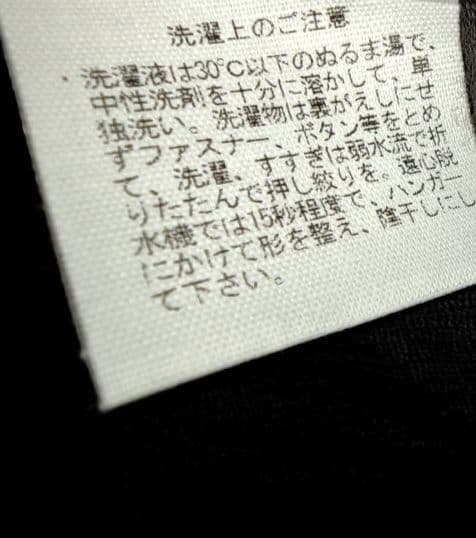 洗濯上のご注意
・洗濯液は30℃以下のぬるま湯で、
中性洗剤を十分に溶かして、単
独洗い。洗濯物は裏がえしにせ
ずファスナー、ボタン等をとめ
て、洗濯、すすぎは弱水流で折
りたたんで押し絞りを。遠心脱
水機では15秒程度で、ハンガー
にかけて形を整え、陰干しにし
て下さい。